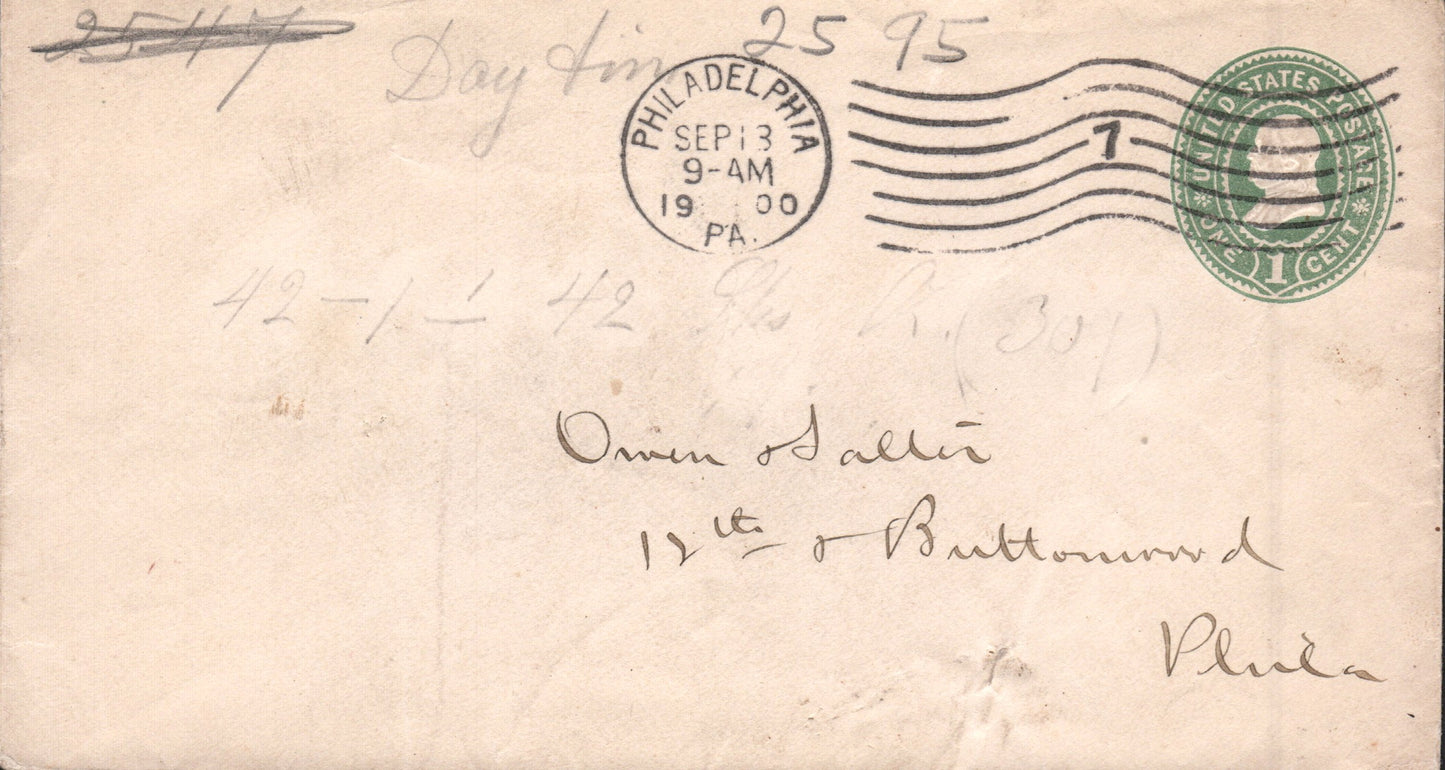 2547
Day tim 25 95
PHILADELPHIA
SEP 13
9-AM
19 00
PA.
7
UNITED STATES POSTAGE
ONE 1 CENT
42 - 1 1 42 (301)
Owen & Salter
12th & Buttonwood
Phila